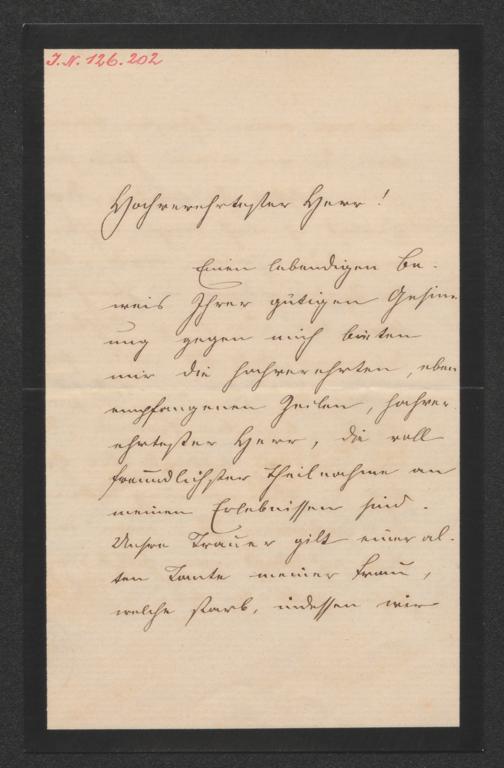 I.N. 126.202
Hochverehrtester Herr!
Einen lebendigen Be-
weis Ihrer gütigen Gesinn-
ung gegen mich bieten
mir die hochverehrten, eben
empfangenen Zeilen, hochver-
ehrtester Herr, die voll
freundlichster Theilnahme an
meinen Erlebnissen sind.
Unsre Trauer gilt einer al-
ten Tante meiner Frau,
welche starb, indessen wir